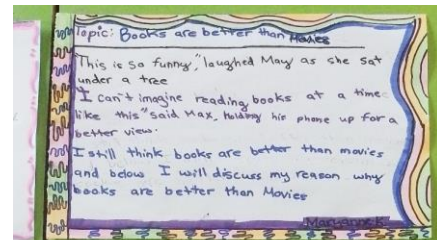 Topic: Books are better than Movies
This is so funny," laughed May as she sat
under a tree
I can't imagine reading books at a time
like this" said Max, Holding his phone up for a
better view.
I still think books are better than movies
and below I will discuss my reason why
books are better than Movies
Maryanne.K